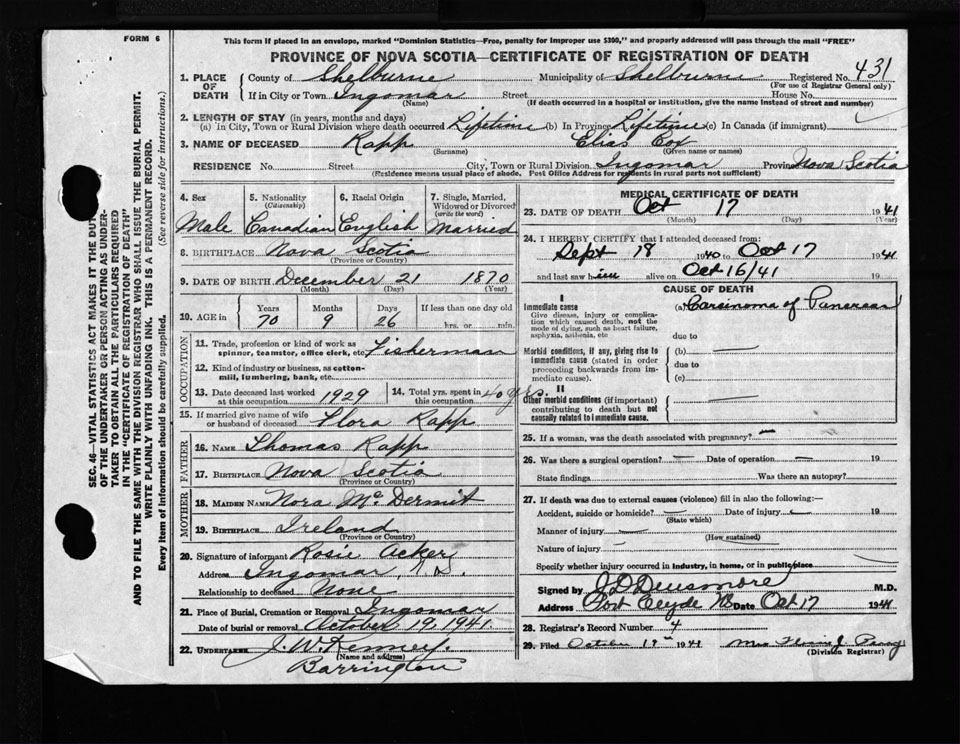 FORM 6
This form if placed in an envelope, marked "Dominion Statistics—Free, penalty for improper use $300," and properly addressed will pass through the mail "FREE"
PROVINCE OF NOVA SCOTIA—CERTIFICATE OF REGISTRATION OF DEATH
1. PLACE OF DEATH County of Shelburne Municipality of Shelburne Registered No. 431
(For use of Registrar General only)
If in City or Town Ingomar Street House No.
(Name) (If death occurred in a hospital or institution, give the name instead of street and number)
2. LENGTH OF STAY (in years, months and days)
(a) In City, Town or Rural Division where death occurred Lifetime (b) In Province Lifetime (c) In Canada (if immigrant)
3. NAME OF DECEASED Rapp Elias Cox
(Surname) (Given name or names)
RESIDENCE No. Street City, Town or Rural Division Ingomar Province Nova Scotia
(Residence means usual place of abode. Post Office Address for residents in rural parts not sufficient)
4. Sex 5. Nationality (Citizenship) 6. Racial Origin 7. Single, Married, Widowed or Divorced (write the word)
Male Canadian English Married
8. BIRTHPLACE Nova Scotia
(Province or Country)
9. DATE OF BIRTH December 21 1870
(Month) (Day) (Year)
10. AGE in Years Months Days If less than one day old
70 9 26 hrs. or min.
OCCUPATION
11. Trade, profession or kind of work as spinner, teamster, office clerk, etc. Fisherman
12. Kind of industry or business, as cotton-mill, lumbering, bank, etc.
13. Date deceased last worked at this occupation 1929 14. Total yrs. spent in this occupation 40 yrs.
15. If married give name of wife or husband of deceased Flora Rapp
FATHER
16. NAME Thomas Rapp
17. BIRTHPLACE Nova Scotia
(Province or Country)
MOTHER
18. MAIDEN NAME Nora McDermit
19. BIRTHPLACE Ireland
(Province or Country)
20. Signature of informant Rosie Acker
Address Ingomar, N.S.
Relationship to deceased None
21. Place of Burial, Cremation or Removal Ingomar
Date of burial or removal October 19, 1941
22. UNDERTAKER J. W. Kenney
(Name and address)
Barrington
MEDICAL CERTIFICATE OF DEATH
23. DATE OF DEATH Oct 17 1941
(Month) (Day) (Year)
24. I HEREBY CERTIFY that I attended deceased from:
Sept 18 1940 to Oct 17 1941
and last saw him alive on Oct 16/41
CAUSE OF DEATH
I
Immediate cause (a) Carcinoma of Pancreas
Give disease, injury or complication which caused death, not the mode of dying, such as heart failure, asphyxia, asthenia, etc due to
Morbid conditions, if any, giving rise to immediate cause (stated in order proceeding backwards from immediate cause). (b)
due to
(c)
II
Other morbid conditions (if important) contributing to death but not causally related to immediate cause.
25. If a woman, was the death associated with pregnancy?
26. Was there a surgical operation? Date of operation 19
State findings Was there an autopsy?
27. If death was due to external causes (violence) fill in also the following:—
Accident, suicide or homicide? Date of injury 19
(State which)
Manner of injury
(How sustained)
Nature of injury
Specify whether injury occurred in industry, in home, or in public place
Signed by J D Densmore M.D.
Address Port Clyde NS Date Oct 17 1941
28. Registrar's Record Number 4
29. Filed October 1941 Mrs
(Division Registrar)
SEC. 46—VITAL STATISTICS ACT MAKES IT THE DUTY
OF THE UNDERTAKER OR PERSON ACTING AS UNDER-
TAKER TO OBTAIN ALL THE PARTICULARS REQUIRED
IN THE "CERTIFICATE OF REGISTRATION OF DEATH"
AND TO FILE THE SAME WITH THE DIVISION REGISTRAR WHO SHALL ISSUE THE BURIAL PERMIT.
WRITE PLAINLY WITH UNFADING INK. THIS IS A PERMANENT RECORD.
Every item of information should be carefully supplied. (See reverse side for instructions.)